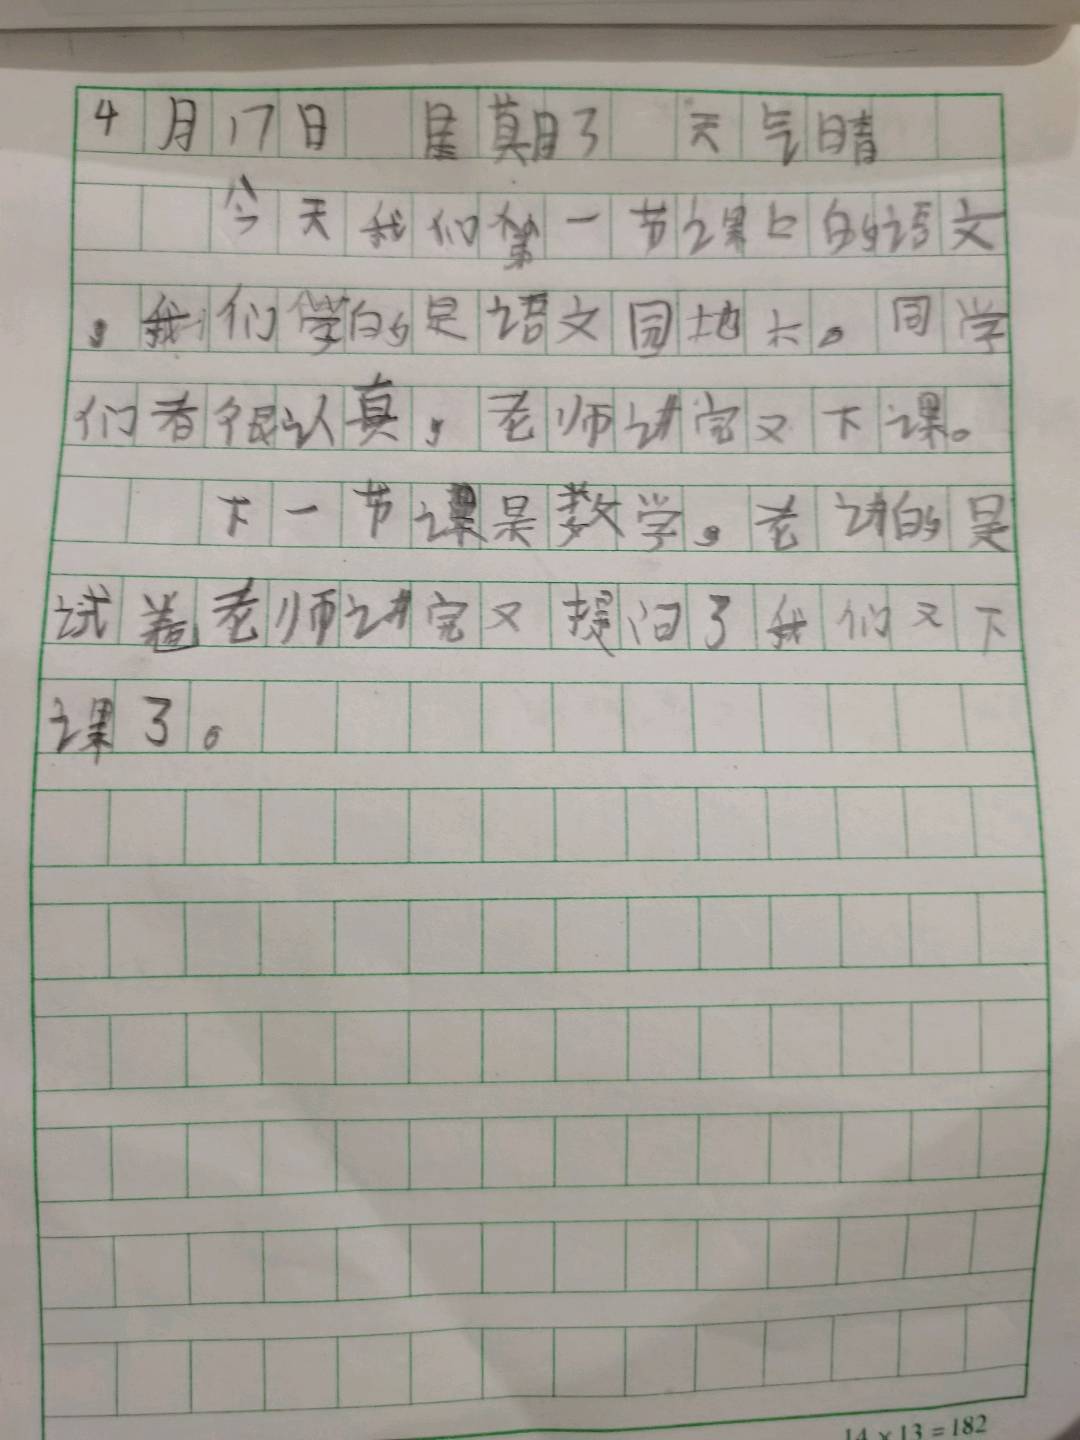 4月17日 星期3 天气晴
今天我们第一节课上的语文
,我们学的是语文园地六。同学
们者很认真,老师讲完又下课。
下一节课是数学,老讲的是
试卷老师讲完又提问了我们又下
课了。
14×13=182